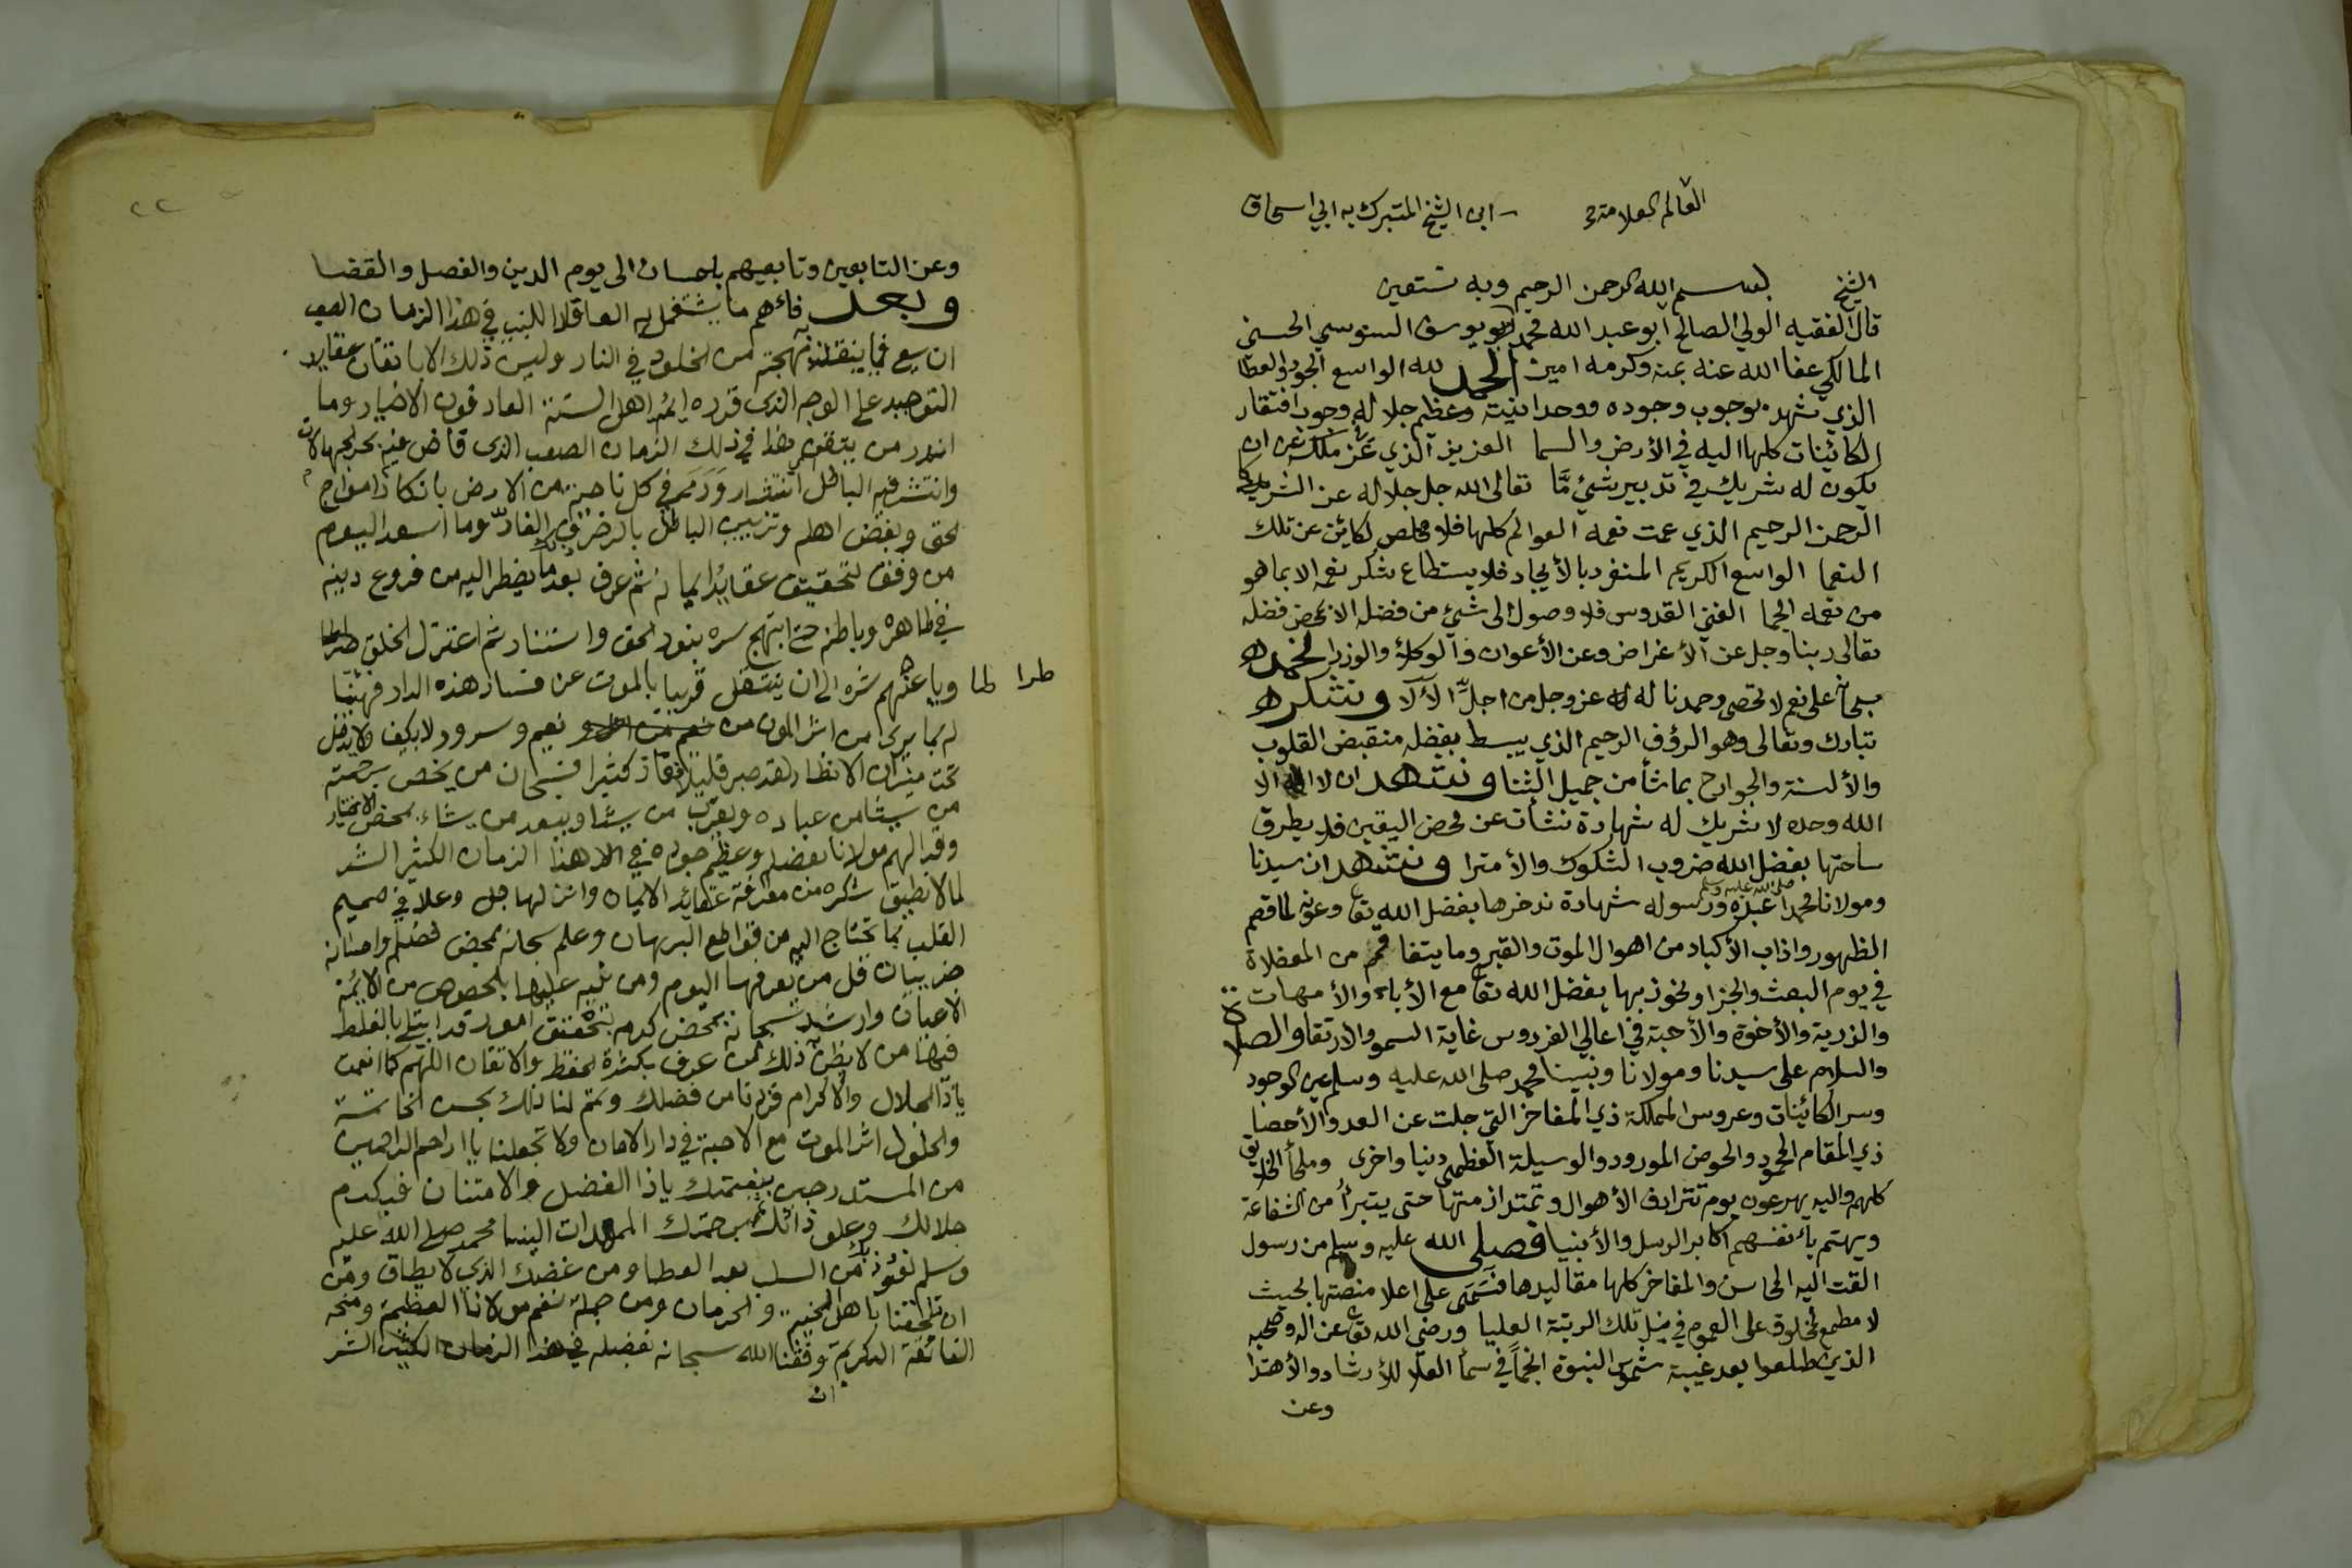 العالم العلامة ابن الشيخ المتبرك به ابي اسحاق
الشيخ بسم الله الرحمن الرحيم وبه نستعين
قال الفقيه الولي الصالح ابو عبد الله محمد ابو يوسف السنوسي الحسني
المالكي عفا الله عنه بمنه وكرمه امين الحمد لله الواسع الجود والعطا
الذي شهد بوجوب وجوده ووحدانيته وعظم جلاله وجوب افتقار
الكائينات كلها اليه في الأرض والسما العزيز الذي عز ملكه عن ان
يكون له شريك في تدبير شيئ مّا تعالى الله جل جلاله عن الشريكا
الرحمن الرحيم الذي عمت نعمه العوالم كلها فلا مخلص لكائين عن تلك
النعما الواسع الكريم المنفرد بالأيجاد فلا يستطاع شكر نعمه الا بما هو
من نعمه الجما الغني القدوس فلا وصول الى شيئ من فضله الا بمحض فضله
تعالى ربنا وجل عن الأغراض وعن الأعوان والوكلأ والوزرا نحمده
سبحانه على نعم لا تحصى وحمدنا له عز وجل من اجلّ الآلا ونشكره
تبارك وتعالى وهو الرؤف الرحيم الذي يبسط بفضله منقبض القلوب
والألسنة والجوارح بما شأ من جميل الثنا ونشهد ان لا اله الا
الله وحده لا شريك له شهادة نشأت عن محض اليقين فلا يطرق
ساحتها بفضل الله ضروب الشكوك والأمترا ونشهد ان سيدنا
ومولانا محمدا عبده ورسوله صلى الله عليه وسلم شهادة ندخرها بفضل الله تعا وعونه لما قصم
الظهور واذاب الأكباد من اهوال الموت والقبر وما يتفاقم من المعضلاة
في يوم البعث والجزا ونحوز بها بفضل الله تعا مع الأباء والأمهات
والذرية والأخوة والأحبة في اعالي الفردوس غاية السمو والارتقا والصلاة
والسلام على سيدنا ومولانا ونبينا محمد صلى الله عليه وسلم عين الوجود
وسر الكائينات وعروس المملكة ذي المفاخر التي جلت عن العد والأحصا
ذي المقام المحمود والحوض المورود والوسيلة العظمى دنيا واخرى وملجأ الخلايق
كلهم واليه يهرعون يوم تترادف الأهوال وتمتد ازمنتها حتى يتبرأ من الشفاعة
ويهتم بأنفسهم اكابر الرسل والأنبيا فصلى الله عليه وسلم من رسول
القت اليه المحاسن والمفاخر كلها مقاليدها فتسمى على اعلا منصتها بحيث
لا مطمع لمخلوق على العموم في نيل تلك الرتبة العليا ورضي الله تعا عن اله وصحبه
الذين طلعوا بعد غيبة شموس النبوة انجماً في سمأ العلا للأرشاد والأهتدا
وعن
٢٢
وعن التابعين وتابعيهم باحسان الى يوم الدين والفصل والقضا
وبعد فاهم ما يشتغل به العاقل اللبيب في هذا الزمان الصعب
ان يسعى فيما ينقذ به مهجته من الخلود في النار وليس ذلك الا باتقان عقايد
التوحيد على الوجه الذى قرره ايمة اهل السنة العارفون الاخيار وما
اندر من يتقن هذا في ذلك الزمان الصعب الذى فاض فيه بحر الجهالات
وانتشر فيه الباطل انتشار ورمى في كل ناحية من الارض بانكار امواج
الحق وبغض اهله وتزيين الباطل بالزخرف الغارّ وما اسعد اليوم
من وفق لتحقيق عقايد ايمانه ثم عرف بعد ذلك ما يضطر اليه من فروع دينه
في ظاهره وباطنه حتى ابتهج سره بنور الحق واستنار ثم اعتزل الخلق طرا طا
طرا لما وياً عنهم شره الى ان ينتقل قريبا بالموت عن فساد هذه الدار فهنيئا
له بما يرى من اثر الموت من نعيم وسرور لا يكيف ولا يدخل
تحت ميزان الانظار لقد صبر قليلا ففاز كثيرا فسبحان من يخص برحمته
من يشا من عباده ويقرب من يشا ويبعد من يشاء بمحض الاختيار
وقد الهم مولانا بفضله وعظيم جوده في هذا الزمان الكثير الشر
لما لا نطيق شكره من معرفة عقائد الايمان وانزلها جل وعلا في صميم
القلب بما تحتاج اليه من قواطع البرهان وعلم سبحانه بمحض فضله وامتنانه
جزئيات قل من يعرفها اليوم ومن ينبه عليها بالخصوص من الايمة
الاعيان وارشد سبحانه بمحض كرمه لتحقيق امور قد ابتلي بالغلط
فيها من لا يظن به ذلك ممن عرف بكثرة الحفظ والاتقان اللهم كما انعمت
يا ذا الجلال والاكرام فزدنا من فضلك وتمم لنا ذلك بحسن الخاتمة
والحلول اثر الموت مع الاحبة في دار الامان ولا تجعلنا يا ارحم الراحمين
من المستدرجين بنعمتك يا ذا الفضل والامتنان فبكرم
جلالك وعلو ذاتك ثم برحمتك المهدات الينا محمد صلى الله عليه
وسلم نعوذ بك من السلب بعد العطا ومن غضبك الذي لا يطاق ومن
ان تلحقنا باهل الخيبة والحرمان ومن جملة نعم مولانا العظيمة ومنحه
الفائقة الكريمة وفقنا الله سبحانه بفضله في هذا الزمان الكثير الشر
ان